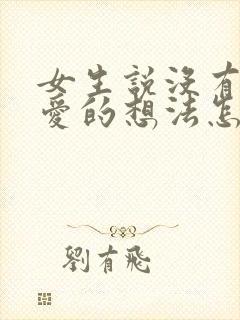 女生說沒有
愛的想法怎
劉有飛